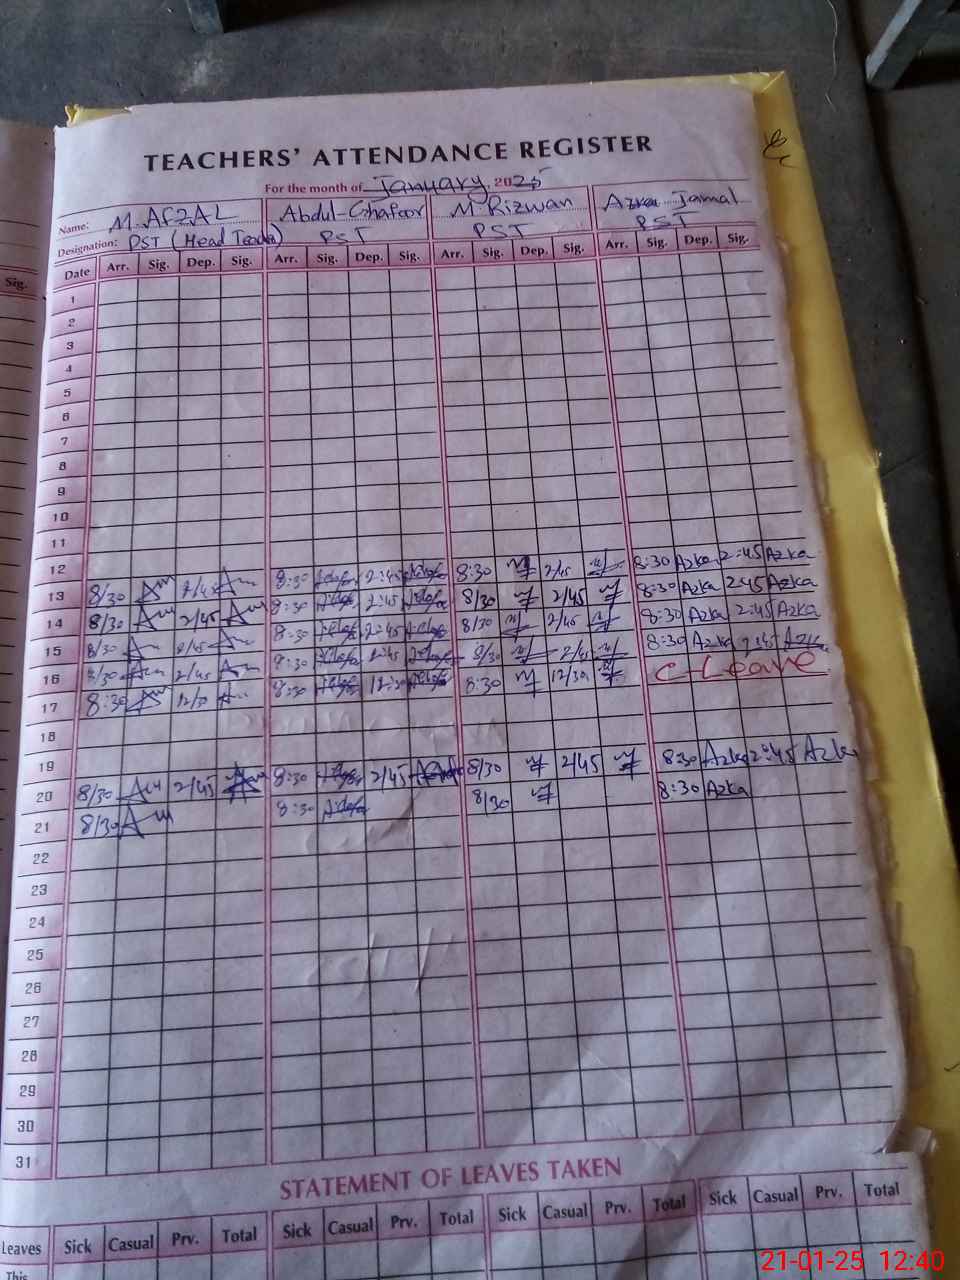 TEACHERS' ATTENDANCE REGISTER
For the month of January, 2025
Name: M. AFZAL Abdul-Ghafoor M. Rizwan Azka Jamal
Designation: PST (Head Teacher) PST PST PST
Sig. Date Arr. Sig. Dep. Sig. Arr. Sig. Dep. Sig. Arr. Sig. Dep. Sig. Arr. Sig. Dep. Sig.
1
2
3
4
5
6
7
8
9
10
11
12
13 8/30 2/45 8:30 2:45 8:30 2/45 8:30 Azka 2:45 Azka
14 8/30 2/45 8:30 2:45 8/30 2/45 8:30 Azka 2:45 Azka
15 8/30 2/45 8:30 2:45 8/30 2/45 8:30 Azka 2:45 Azka
16 8/30 2/45 8:30 2:45 8/30 2/45 8:30 Azka 2:45 Azka
17 8:30 12/30 8:30 12:30 8:30 12/30 C-Leave
18
19
20 8/30 2/45 8:30 2/45 8/30 2/45 8:30 Azka 2:45 Azka
21 8/30 8:30 8/30 8:30 Azka
22
23
24
25
26
27
28
29
30
31
STATEMENT OF LEAVES TAKEN
Leaves Sick Casual Prv. Total Sick Casual Prv. Total Sick Casual Prv. Total Sick Casual Prv. Total
This
21-01-25 12:40